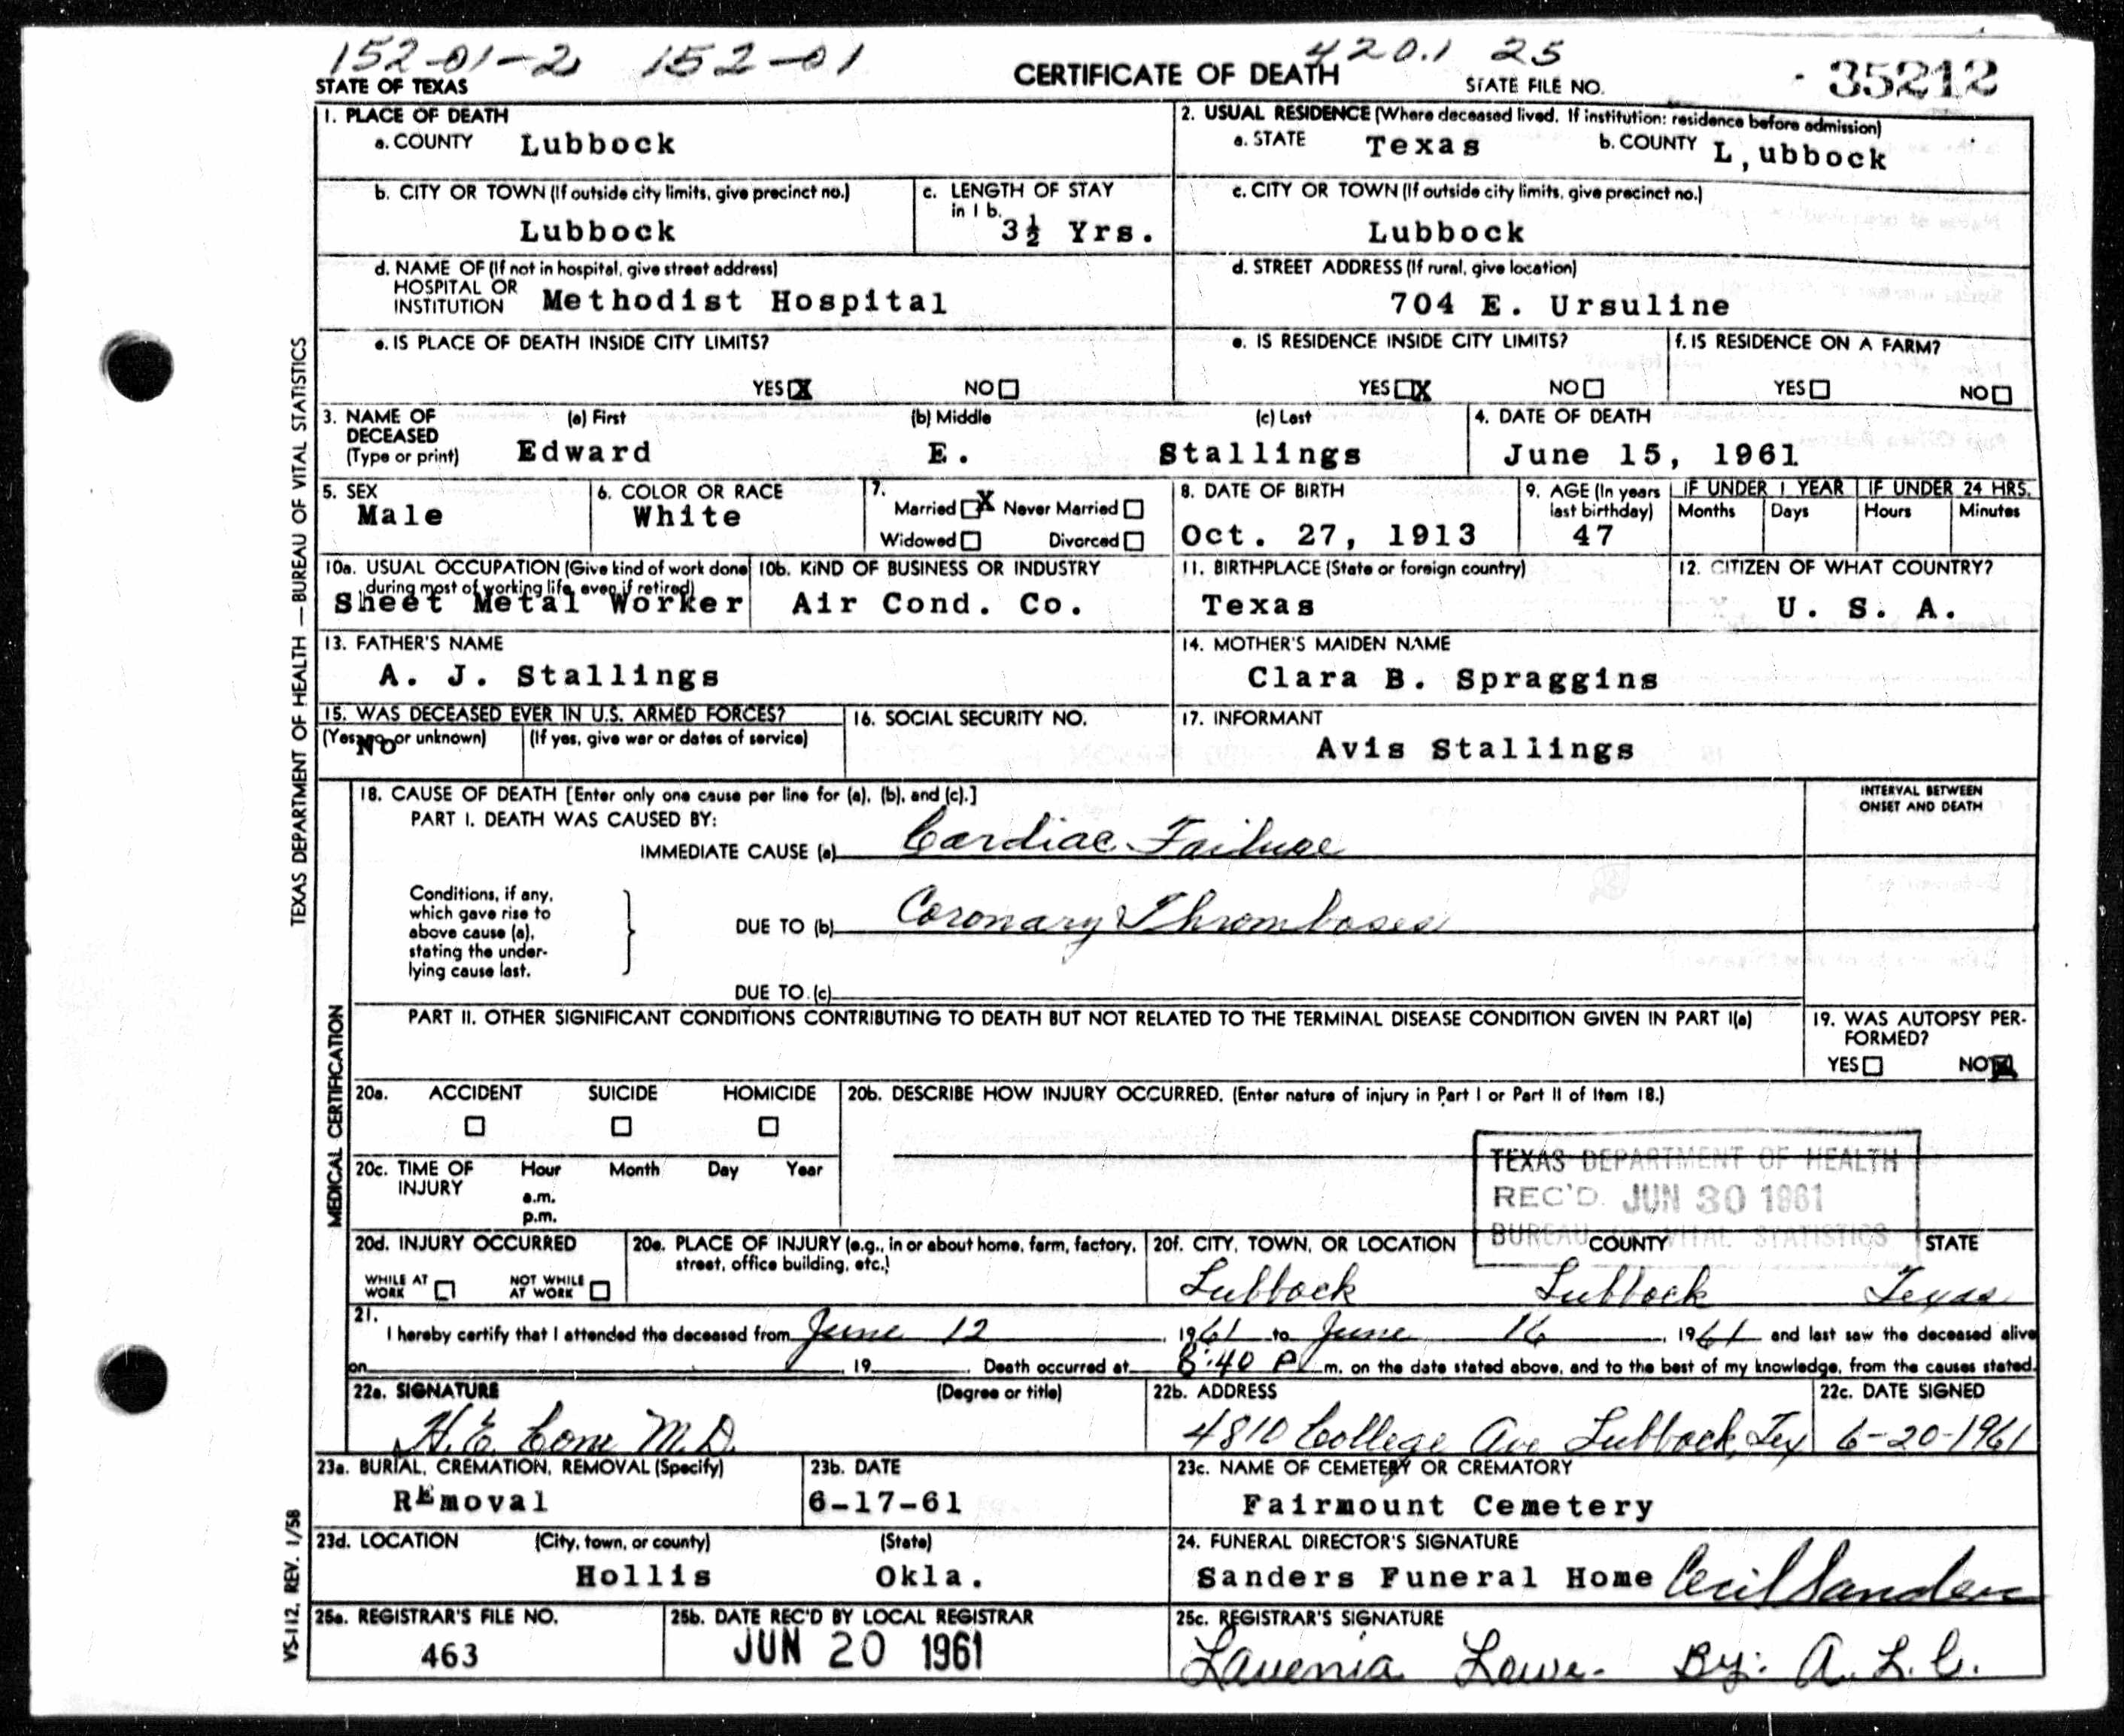 152-01-2 152-01 420.1 25
STATE OF TEXAS CERTIFICATE OF DEATH STATE FILE NO. 35212
1. PLACE OF DEATH
a. COUNTY Lubbock
2. USUAL RESIDENCE (Where deceased lived. If institution: residence before admission)
a. STATE Texas b. COUNTY L,ubbock
b. CITY OR TOWN (If outside city limits, give precinct no.)
Lubbock
c. LENGTH OF STAY
in 1 b.
3½ Yrs.
c. CITY OR TOWN (If outside city limits, give precinct no.)
Lubbock
d. NAME OF (If not in hospital, give street address)
HOSPITAL OR
INSTITUTION Methodist Hospital
d. STREET ADDRESS (If rural, give location)
704 E. Ursuline
e. IS PLACE OF DEATH INSIDE CITY LIMITS?
YES X NO
e. IS RESIDENCE INSIDE CITY LIMITS?
YES X NO
f. IS RESIDENCE ON A FARM?
YES NO
3. NAME OF
DECEASED
(Type or print)
(a) First (b) Middle (c) Last
Edward E. Stallings
4. DATE OF DEATH
June 15, 1961
5. SEX
Male
6. COLOR OR RACE
White
7.
Married X Never Married
Widowed Divorced
8. DATE OF BIRTH
Oct. 27, 1913
9. AGE (In years
last birthday)
47
IF UNDER 1 YEAR IF UNDER 24 HRS.
Months Days Hours Minutes
10a. USUAL OCCUPATION (Give kind of work done
during most of working life, even if retired)
Sheet Metal Worker
10b. KIND OF BUSINESS OR INDUSTRY
Air Cond. Co.
11. BIRTHPLACE (State or foreign country)
Texas
12. CITIZEN OF WHAT COUNTRY?
U. S. A.
13. FATHER'S NAME
A. J. Stallings
14. MOTHER'S MAIDEN NAME
Clara B. Spraggins
15. WAS DECEASED EVER IN U.S. ARMED FORCES?
(Yes, no, or unknown) (If yes, give war or dates of service)
No
16. SOCIAL SECURITY NO.
17. INFORMANT
Avis Stallings
18. CAUSE OF DEATH [Enter only one cause per line for (a), (b), and (c).]
INTERVAL BETWEEN
ONSET AND DEATH
PART I. DEATH WAS CAUSED BY:
IMMEDIATE CAUSE (a) Cardiac Failure
Conditions, if any,
which gave rise to
above cause (a),
stating the under-
lying cause last.
DUE TO (b) Coronary Thromboses
DUE TO (c)
PART II. OTHER SIGNIFICANT CONDITIONS CONTRIBUTING TO DEATH BUT NOT RELATED TO THE TERMINAL DISEASE CONDITION GIVEN IN PART I(a)
19. WAS AUTOPSY PER-
FORMED?
YES NO X
20a. ACCIDENT SUICIDE HOMICIDE
20b. DESCRIBE HOW INJURY OCCURRED. (Enter nature of injury in Part I or Part II of Item 18.)
20c. TIME OF
INJURY
Hour Month Day Year
a.m.
p.m.
TEXAS DEPARTMENT OF HEALTH
REC'D. JUN 30 1961
BUREAU OF VITAL STATISTICS
20d. INJURY OCCURRED
WHILE AT
WORK
NOT WHILE
AT WORK
20e. PLACE OF INJURY (e.g., in or about home, farm, factory,
street, office building, etc.)
20f. CITY, TOWN, OR LOCATION COUNTY STATE
Lubbock Lubbock Texas
21.
I hereby certify that I attended the deceased from June 12, 1961 to June 16, 1961 and last saw the deceased alive
on , 19 . Death occurred at 8:40 P m. on the date stated above, and to the best of my knowledge, from the causes stated.
22a. SIGNATURE (Degree or title)
H. E. Cone M.D.
22b. ADDRESS
4810 College Ave Lubbock, Tex
22c. DATE SIGNED
6-20-1961
23a. BURIAL, CREMATION, REMOVAL (Specify)
REmoval
23b. DATE
6-17-61
23c. NAME OF CEMETERY OR CREMATORY
Fairmount Cemetery
23d. LOCATION (City, town, or county) (State)
Hollis Okla.
24. FUNERAL DIRECTOR'S SIGNATURE
Sanders Funeral Home Cecil Sanders
25a. REGISTRAR'S FILE NO.
463
25b. DATE REC'D BY LOCAL REGISTRAR
JUN 20 1961
25c. REGISTRAR'S SIGNATURE
Lavenia Lowe. By: A. L. C.
TEXAS DEPARTMENT OF HEALTH — BUREAU OF VITAL STATISTICS
MEDICAL CERTIFICATION
VS-112, REV. 1/58